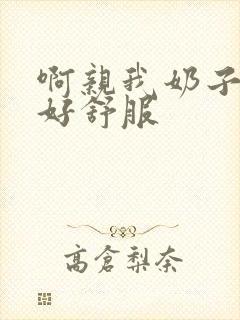 啊亲我 奶子
好舒服
高仓梨奈